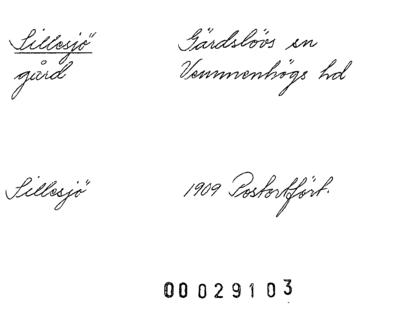 Sillesjö Gärdslövs sn
gård Vemmenhögs hd
Sillesjö 1909 Postortfört.
00029103